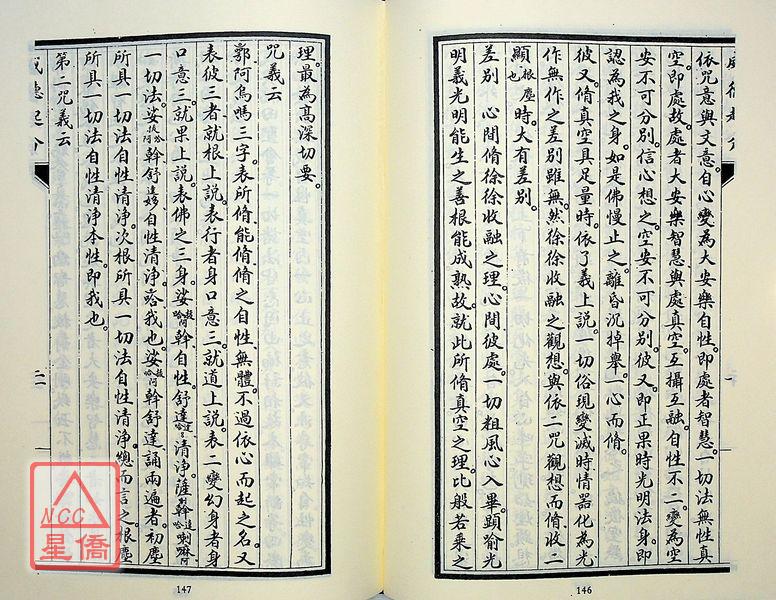 依咒意與文意。自心變為大安樂自性。即處者智慧。一切法無性真
空。即處故。處者大安樂智慧與處真空。互攝互融。自性不二。變為空
安不可分別。信心想之。空安不可分別。彼又。即正果時光明法身。即
認為我之身。如是佛慢止之。離昏沉掉舉。一心而脩。
彼又。脩真空具足量時。依了義上說。一切俗現變滅時。情器化為光
作無作之差別雖無。然徐徐收融之觀想。與依二咒觀想而脩。收二
顯根塵也時。大有差別。
差別 心間脩徐徐收融之理。心間彼處。一切粗風心入畢。顯喻光
明義光明能生之善根能成熟故。就此所脩真空之理。比般若乘之
146
理。最為高深切要。
咒義云
鄂阿烏嗎三字。表所脩能脩脩之自性。無體。不過依心而起之名。又
表彼三者就根上說。表行者身口意三。就道上說。表二變幻身者身
口意三。就果上說。表佛之三身。娑斡自性。舒達清淨。薩斡喇嘛
一切法。娑斡舒達自性清淨。㗶我也。娑斡舒達。誦兩遍者。初塵
所具一切法自性清淨。次根所具一切法自性清淨。總而言之。根塵
所具一切法自性清淨本性。即我也。
第二咒義云
147
NCC
星僑